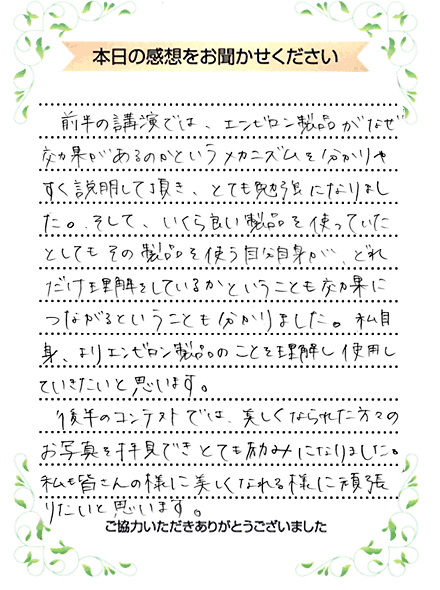 本日の感想をお聞かせください
前半の講演では、エンビロン製品がなぜ
効果があるのかというメカニズムを分かりや
すく説明して頂き、とても勉強になりまし
た。そして、いくら良い製品を使っていた
としてもその製品を使う自分自身が、どれ
だけ理解をしているかということも効果に
つながるということも分かりました。私自
身、よりエンビロン製品のことを理解し使用し
ていきたいと思います。
後半のコンテストでは、美しくなられた方々の
お写真を拝見できとても励みになりました。
私も皆さんの様に美しくなれる様に頑張
りたいと思います。
ご協力いただきありがとうございました